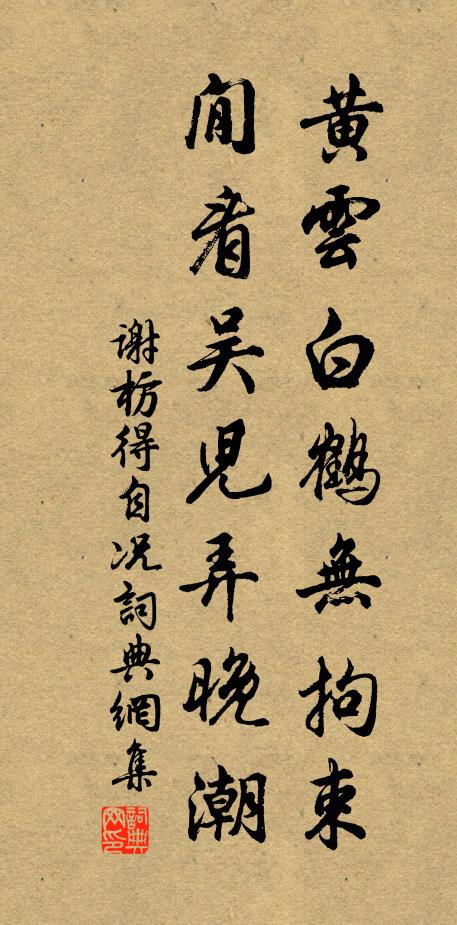 黃雲白鶴無拘束
閒看吳兒弄晚潮
謝枋得自況詞典網集
詞典网印